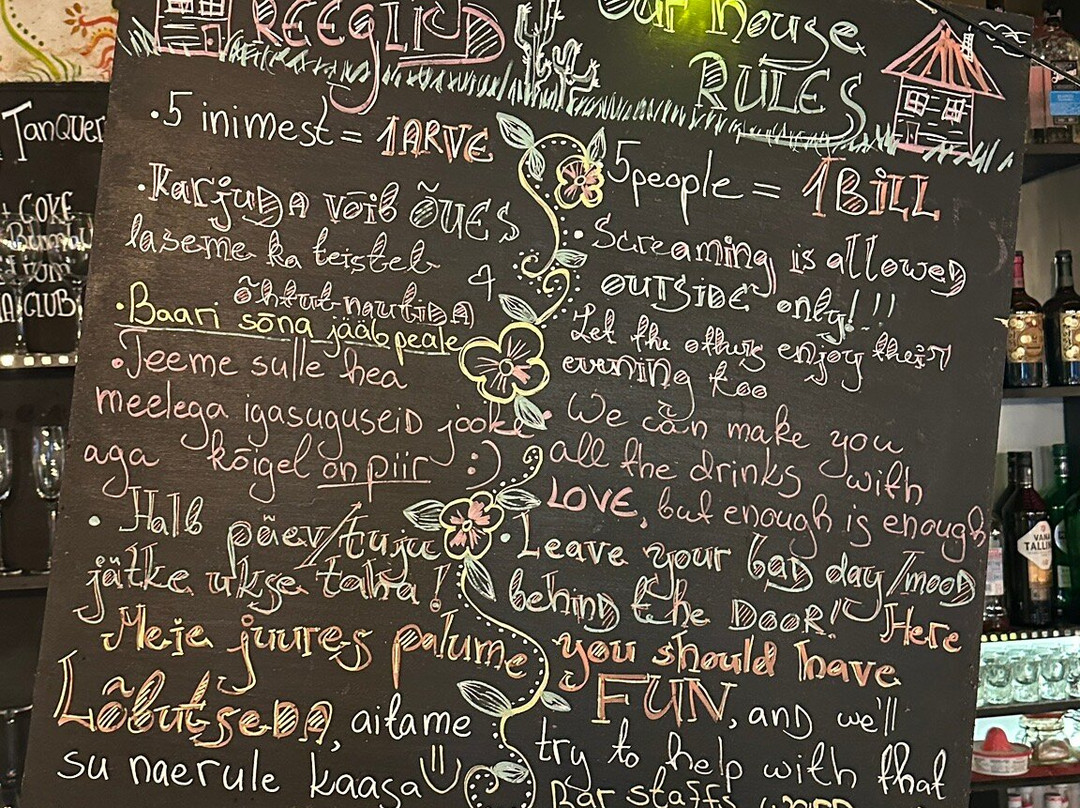 REEGLID
·5 inimest = 1 ARVE
·Karjuda võib ÕUES
laseme ka teistel
õhtut nautida
·Baari sõna jääb peale
·Teeme sulle hea
meelega igasuguseid jooke
aga kõigel on piir :)
·Halb päev/tuju
jätke ukse taha!
Meie juures palume
LõbutseDA, aitame
su naerule kaasa
Our house
RULES
5 people = 1 BiLL
·Screaming is allowed
OUTSIDE only!!!
Let the others enjoy their
evening too
·We can make you
all the drinks with
LOVE, but enough is enough
·Leave your bad day/mood
behind the DOOR! Here
you should have
FUN, and we'll
try to help with that
Bar staffs word
TanQuer
+ COKE
CLUB
VANA
TALLINN